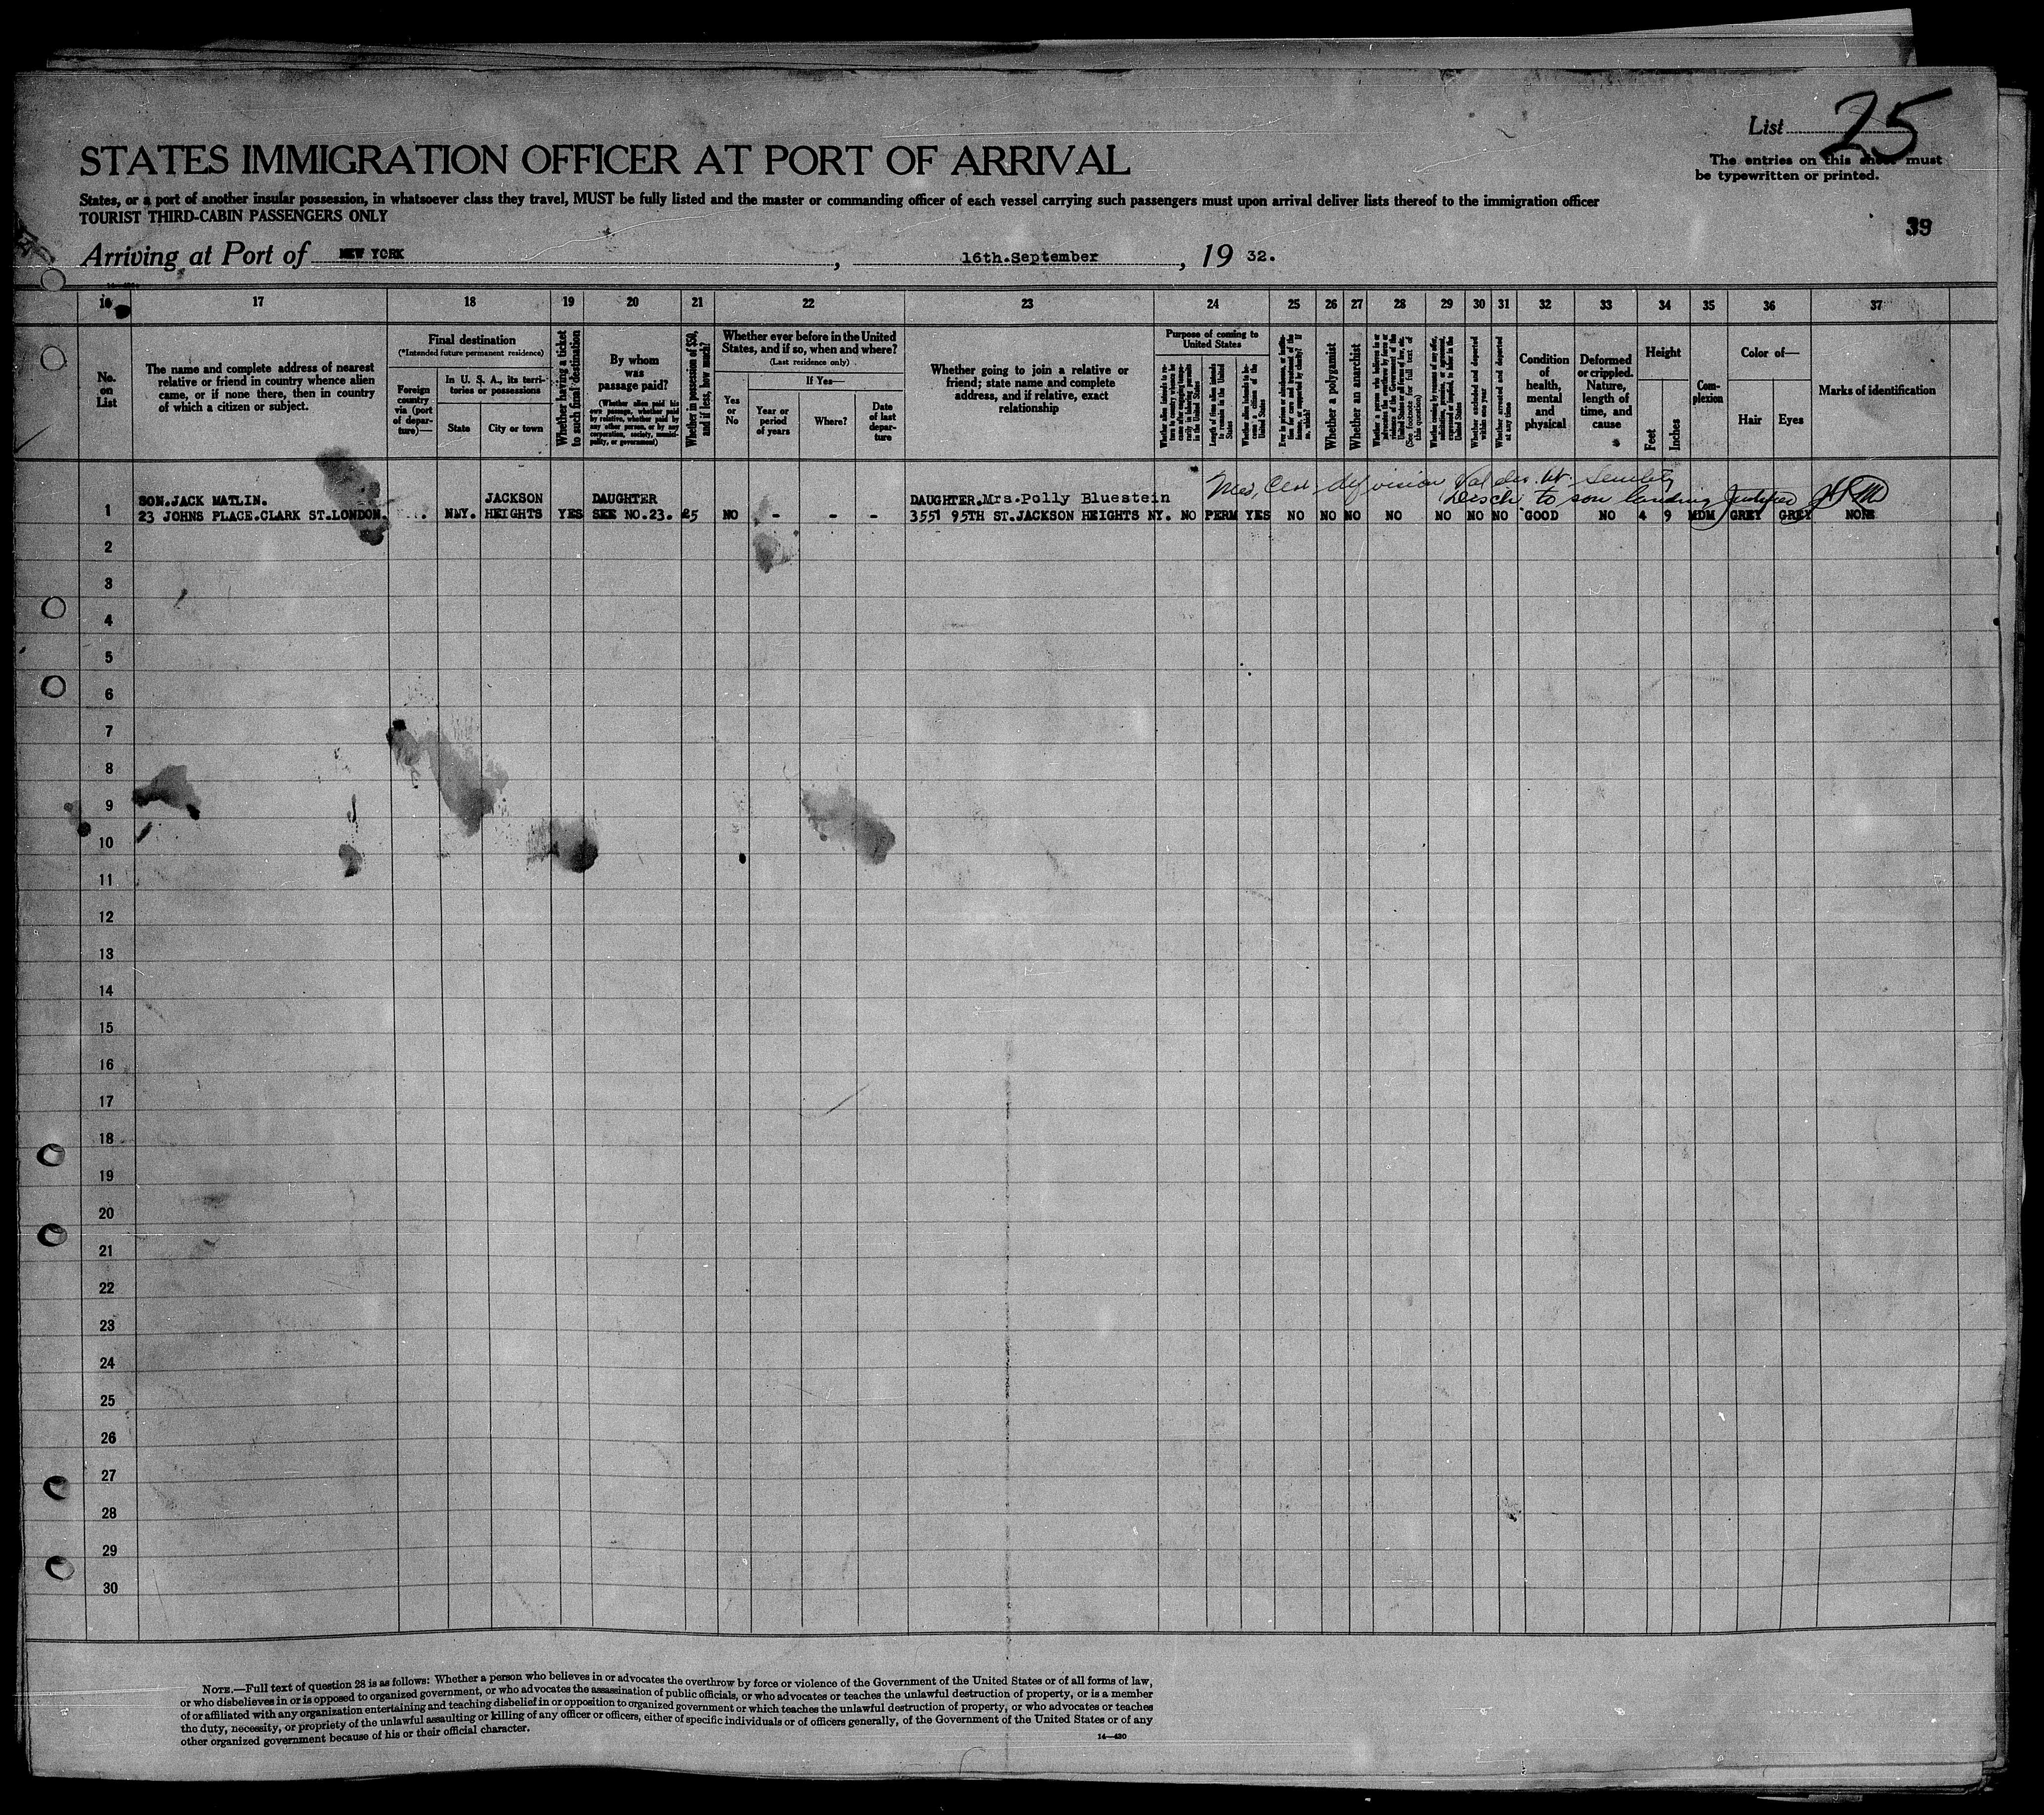 List 25
STATES IMMIGRATION OFFICER AT PORT OF ARRIVAL
The entries on this sheet must
be typewritten or printed.
States, or a port of another insular possession, in whatsoever class they travel, MUST be fully listed and the master or commanding officer of each vessel carrying such passengers must upon arrival deliver lists thereof to the immigration officer
TOURIST THIRD-CABIN PASSENGERS ONLY
39
Arriving at Port of NEW YORK, 16th.September, 19 32.
17 18 19 20 21 22 23 24 25 26 27 28 29 30 31 32 33 34 35 36 37
No. on List
The name and complete address of nearest
relative or friend in country whence alien
came, or if none there, then in country
of which a citizen or subject.
Final destination
(*Intended future permanent residence)
Foreign
country
via (port
of depar-
ture)—
In U. S. A., its terri-
tories or possessions
State
City or town
Whether having a ticket
to such final destination
By whom
was
passage paid?
(Whether alien paid his
own passage, whether paid
by relative, whether paid by
any other person, or by any
corporation, society, munici-
pality, or government)
Whether in possession of $50,
and if less, how much?
Whether ever before in the United
States, and if so, when and where?
(Last residence only)
Yes
or
No
If Yes—
Year or
period
of years
Where?
Date
of last
depar-
ture
Whether going to join a relative or
friend; state name and complete
address, and if relative, exact
relationship
Purpose of coming to
United States
Length of time alien intends
to remain in the United
States
Whether alien intends to be-
come a citizen of the
United States
Whether a polygamist
Whether an anarchist
(See footnote for full text of
this question)
Whether excluded and deported
within one year
Whether arrested and deported
at any time
Condition
of
health,
mental
and
physical
Deformed
or crippled.
Nature,
length of
time, and
cause
Height
Feet
Inches
Com-
plexion
Color of—
Hair
Eyes
Marks of identification
Disch to son landing Justified
SON.JACK MATLIN. JACKSON DAUGHTER DAUGHTER.Mrs.Polly Bluestein
1 23 JOHNS PLACE.CLARK ST.LONDON. NNY. HEIGHTS YES SEE NO.23. 25 NO - - - 3551 95TH ST.JACKSON HEIGHTS NY. NO PERM YES NO NO NO NO NO NO NO GOOD NO 4 9 MDM GREY GREY NONE
2
3
4
5
6
7
8
9
10
11
12
13
14
15
16
17
18
19
20
21
22
23
24
25
26
27
28
29
30
NOTE.—Full text of question 28 is as follows: Whether a person who believes in or advocates the overthrow by force or violence of the Government of the United States or of all forms of law,
or who disbelieves in or is opposed to organized government, or who advocates the assassination of public officials, or who advocates or teaches the unlawful destruction of property, or is a member
of or affiliated with any organization entertaining and teaching disbelief in or opposition to organized government or which teaches the unlawful destruction of property, or who advocates or teaches
the duty, necessity, or propriety of the unlawful assaulting or killing of any officer or officers, either of specific individuals or of officers generally, of the Government of the United States or of any
other organized government because of his or their official character.
14—430